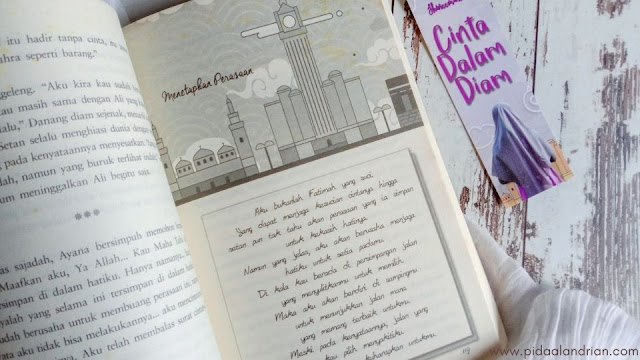 itu hadir tanpa cinta,
ahra seperti barang."
geleng. "Aku kira kau sudah
kau masih sama dengan Ali yang
lah," Danang diam sejenak,
Setan selalu menghiasi dunia dengan
pada kenyataannya menyesatkan.
lah, namun yang buruk terlihat indah
um meninggalkan Ali begitu saja.
***
as sajadah, Ayana bersimpuh memohon
Maafkan aku, Ya Allah... Kau Maha Tahu
rsimpan di dalam hatiku. Hanya namamu,
yalah yang selama ini tersimpan di dalam
udah berusaha untuk membuang perasaan ini,
ata aku tidak bisa melakukannya... aku mencintai
Aku telah membalas surat
Menetapkan Perasaan
Aku bukanlah Fatimah yang suci
Yang dapat menjaga kesucian cintanya hingga
setan pun tak tahu akan perasaan yang ia simpan
untuk kekasih hatinya
Namun yang jelas, aku akan berusaha menjaga
hatiku untuk setia padamu
Di kala kau berada di persimpangan jalan
yang menyulitkanmu untuk memilih
Maka aku akan berdiri di sampingmu
untuk menunjukkan jalan mana
yang memang terbaik untukmu
Meski pada kenyataannya, jalan yang
kau pilih menyakitiku
kebahagiaan untukmu
Cinta
Dalam
Diam
www.pidaalandrian.com